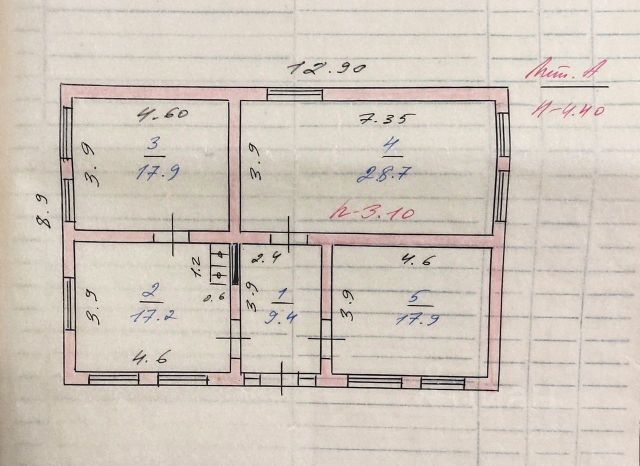 12.90
Лит. А
H-4.40
4.60
7.35
3.9
3
17.9
3.9
4
28.7
8.9
h-3.10
1.2
2.4
4.6
3.9
2
17.2
0.6
3.9
1
9.4
3.9
5
17.9
4.6